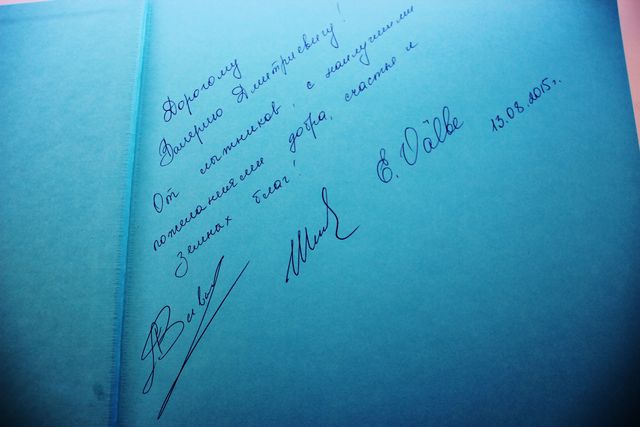 Дорогому
Валерию Дмитриевичу!
От лыжников, с наилучшими
пожеланиями добра, счастья и
земных благ!
E. Välbe
13.08.2015г.